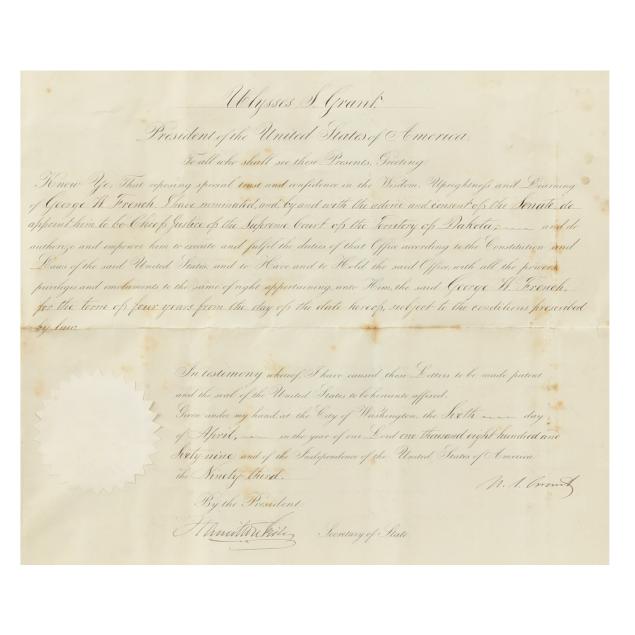 Ulysses S. Grant
President of the United States of America.
To all who shall see these Presents, Greeting:
Know Ye, That reposing special trust and confidence in the Wisdom, Uprightness and Learning
of George W. French, I have nominated, and by and with the advice and consent of the Senate do
appoint him to be Chief Justice of the Supreme Court of the Territory of Dakota, and do
authorize and empower him to execute and fulfil the duties of that Office according to the Constitution and
Laws of the said United States, and to Have and to Hold the said Office with all the powers,
privileges and emoluments to the same of right appertaining unto Him, the said George W. French,
for the term of four years from the day of the date hereof, subject to the conditions prescribed
by law.
In testimony whereof, I have caused these Letters to be made patent
and the seal of the United States to be hereunto affixed.
Given under my hand, at the City of Washington, the Sixth day
of April, in the year of our Lord one thousand eight hundred and
sixty nine and of the Independence of the United States of America
the Ninety third.
U. S. Grant
By the President
Hamilton Fish Secretary of State